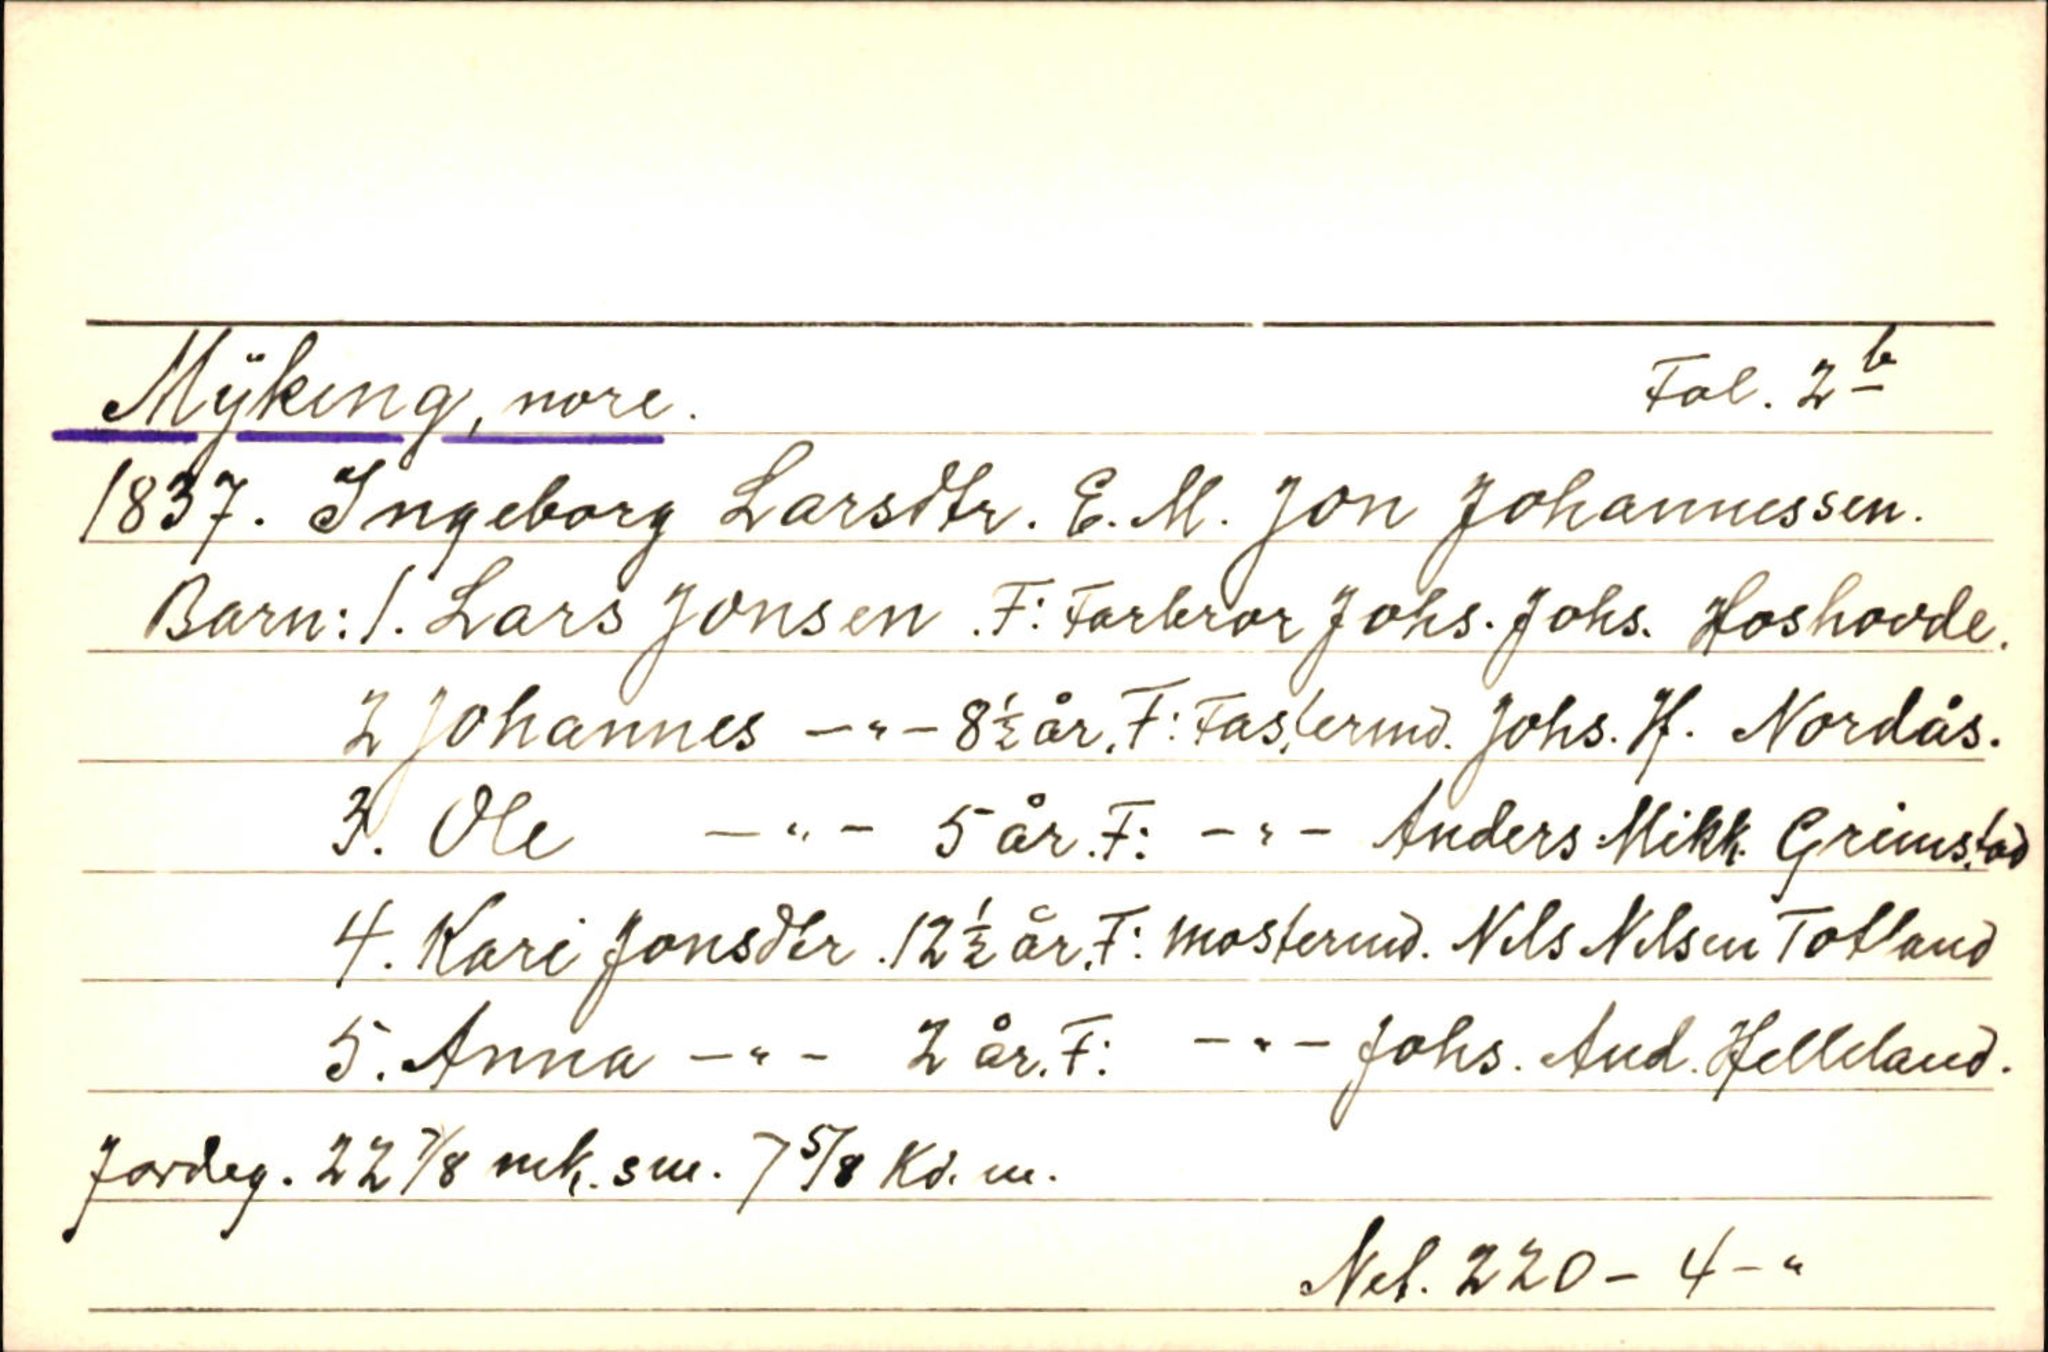 Myking, nore. Fol. 2b
1837. Ingeborg Larsdtr. E. M. Jon Johannessen.
Barn: 1. Lars Jonsen. F: Farbror Johs. Johs. Hoshovde.
2 Johannes -"- 8½ år. F: Fastermd. Johs. H. Nordås.
3. Ole -"- 5 år. F: -"- Anders Mikk. Grimstad
4. Kari Jonsdtr. 12½ år. F: mostermd. Nils Nilsen Totland
5. Anna -"- 2 år. F: -"- Johs. And. Helleland.
Jordeg. 22 7/8 mk. sm. 7 5/8 Kd. m.
Net. 220 - 4 - "